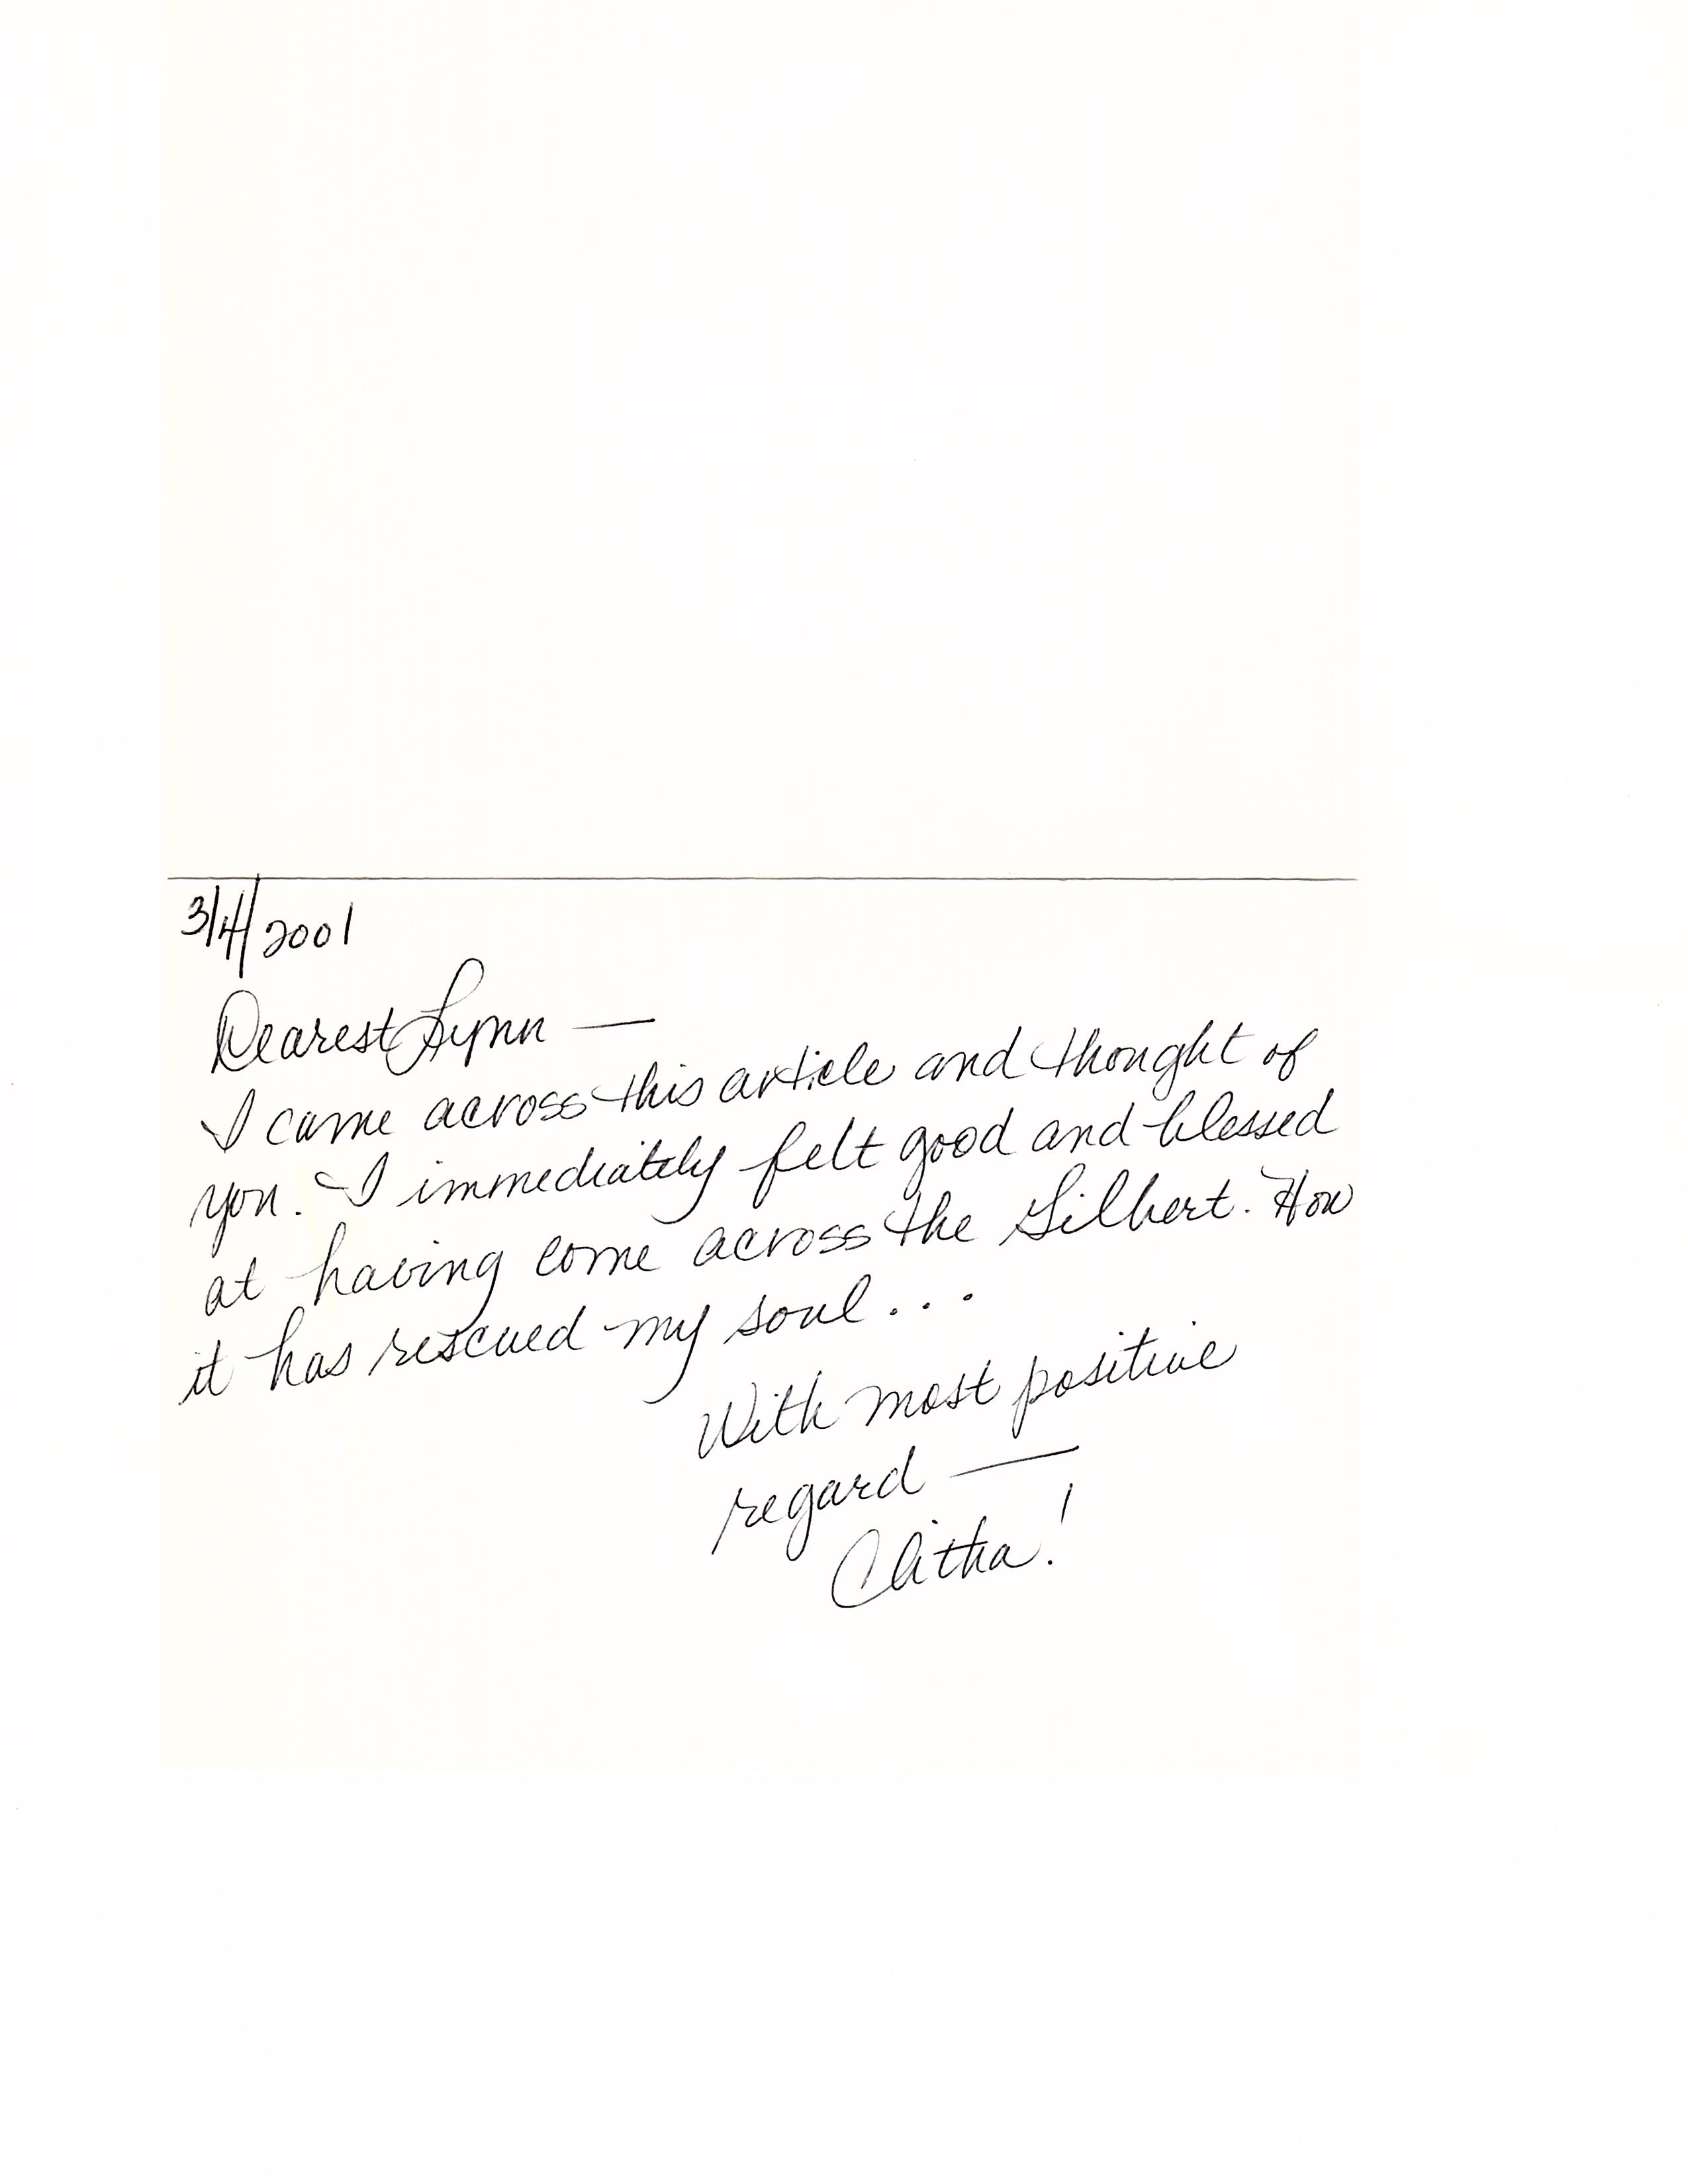 3/4/2001
Dearest Lynn —
I came across this article and thought of
you. I immediately felt good and blessed
at having come across the Gilbert. How
it has rescued my soul...
With most positive
regard —
Clitha!